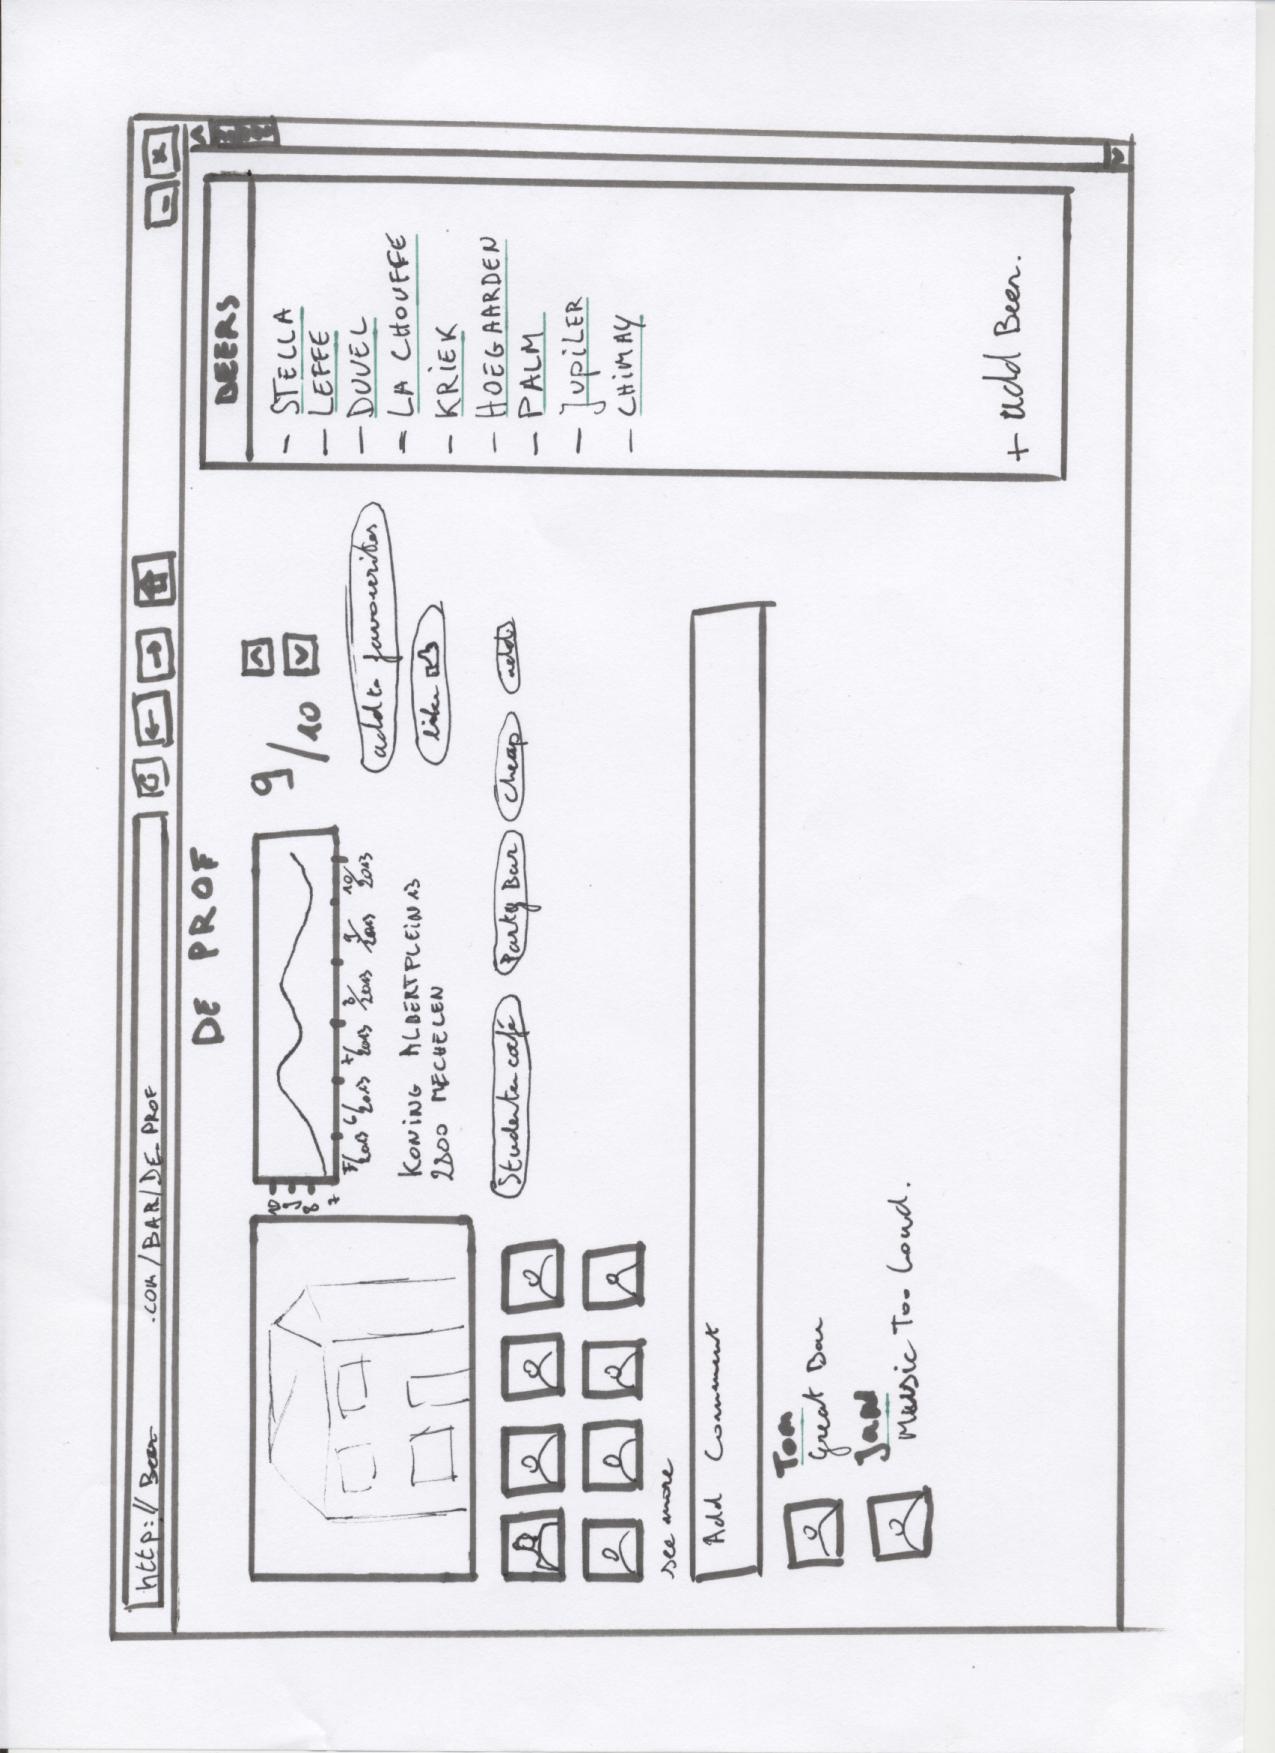 http:// Beer .com/BAR/DE_PROF
DE PROF
10
9
8
7
5/2013 6/2013 7/2013 8/2013 9/2013 10/2013
9/10
KONING ALBERTPLEIN 13
2800 MECHELEN
add to favourites
like
Studenten café
Party Bar
Cheap
add
see more
Add Comment
Tom
Great Bar
Jan
Music Too Loud.
BEERS
- STELLA
- LEFFE
- DUVEL
- LA CHOUFFE
- KRIEK
- HOEGAARDEN
- PALM
- JUPILER
- CHIMAY
+ Add Beer.